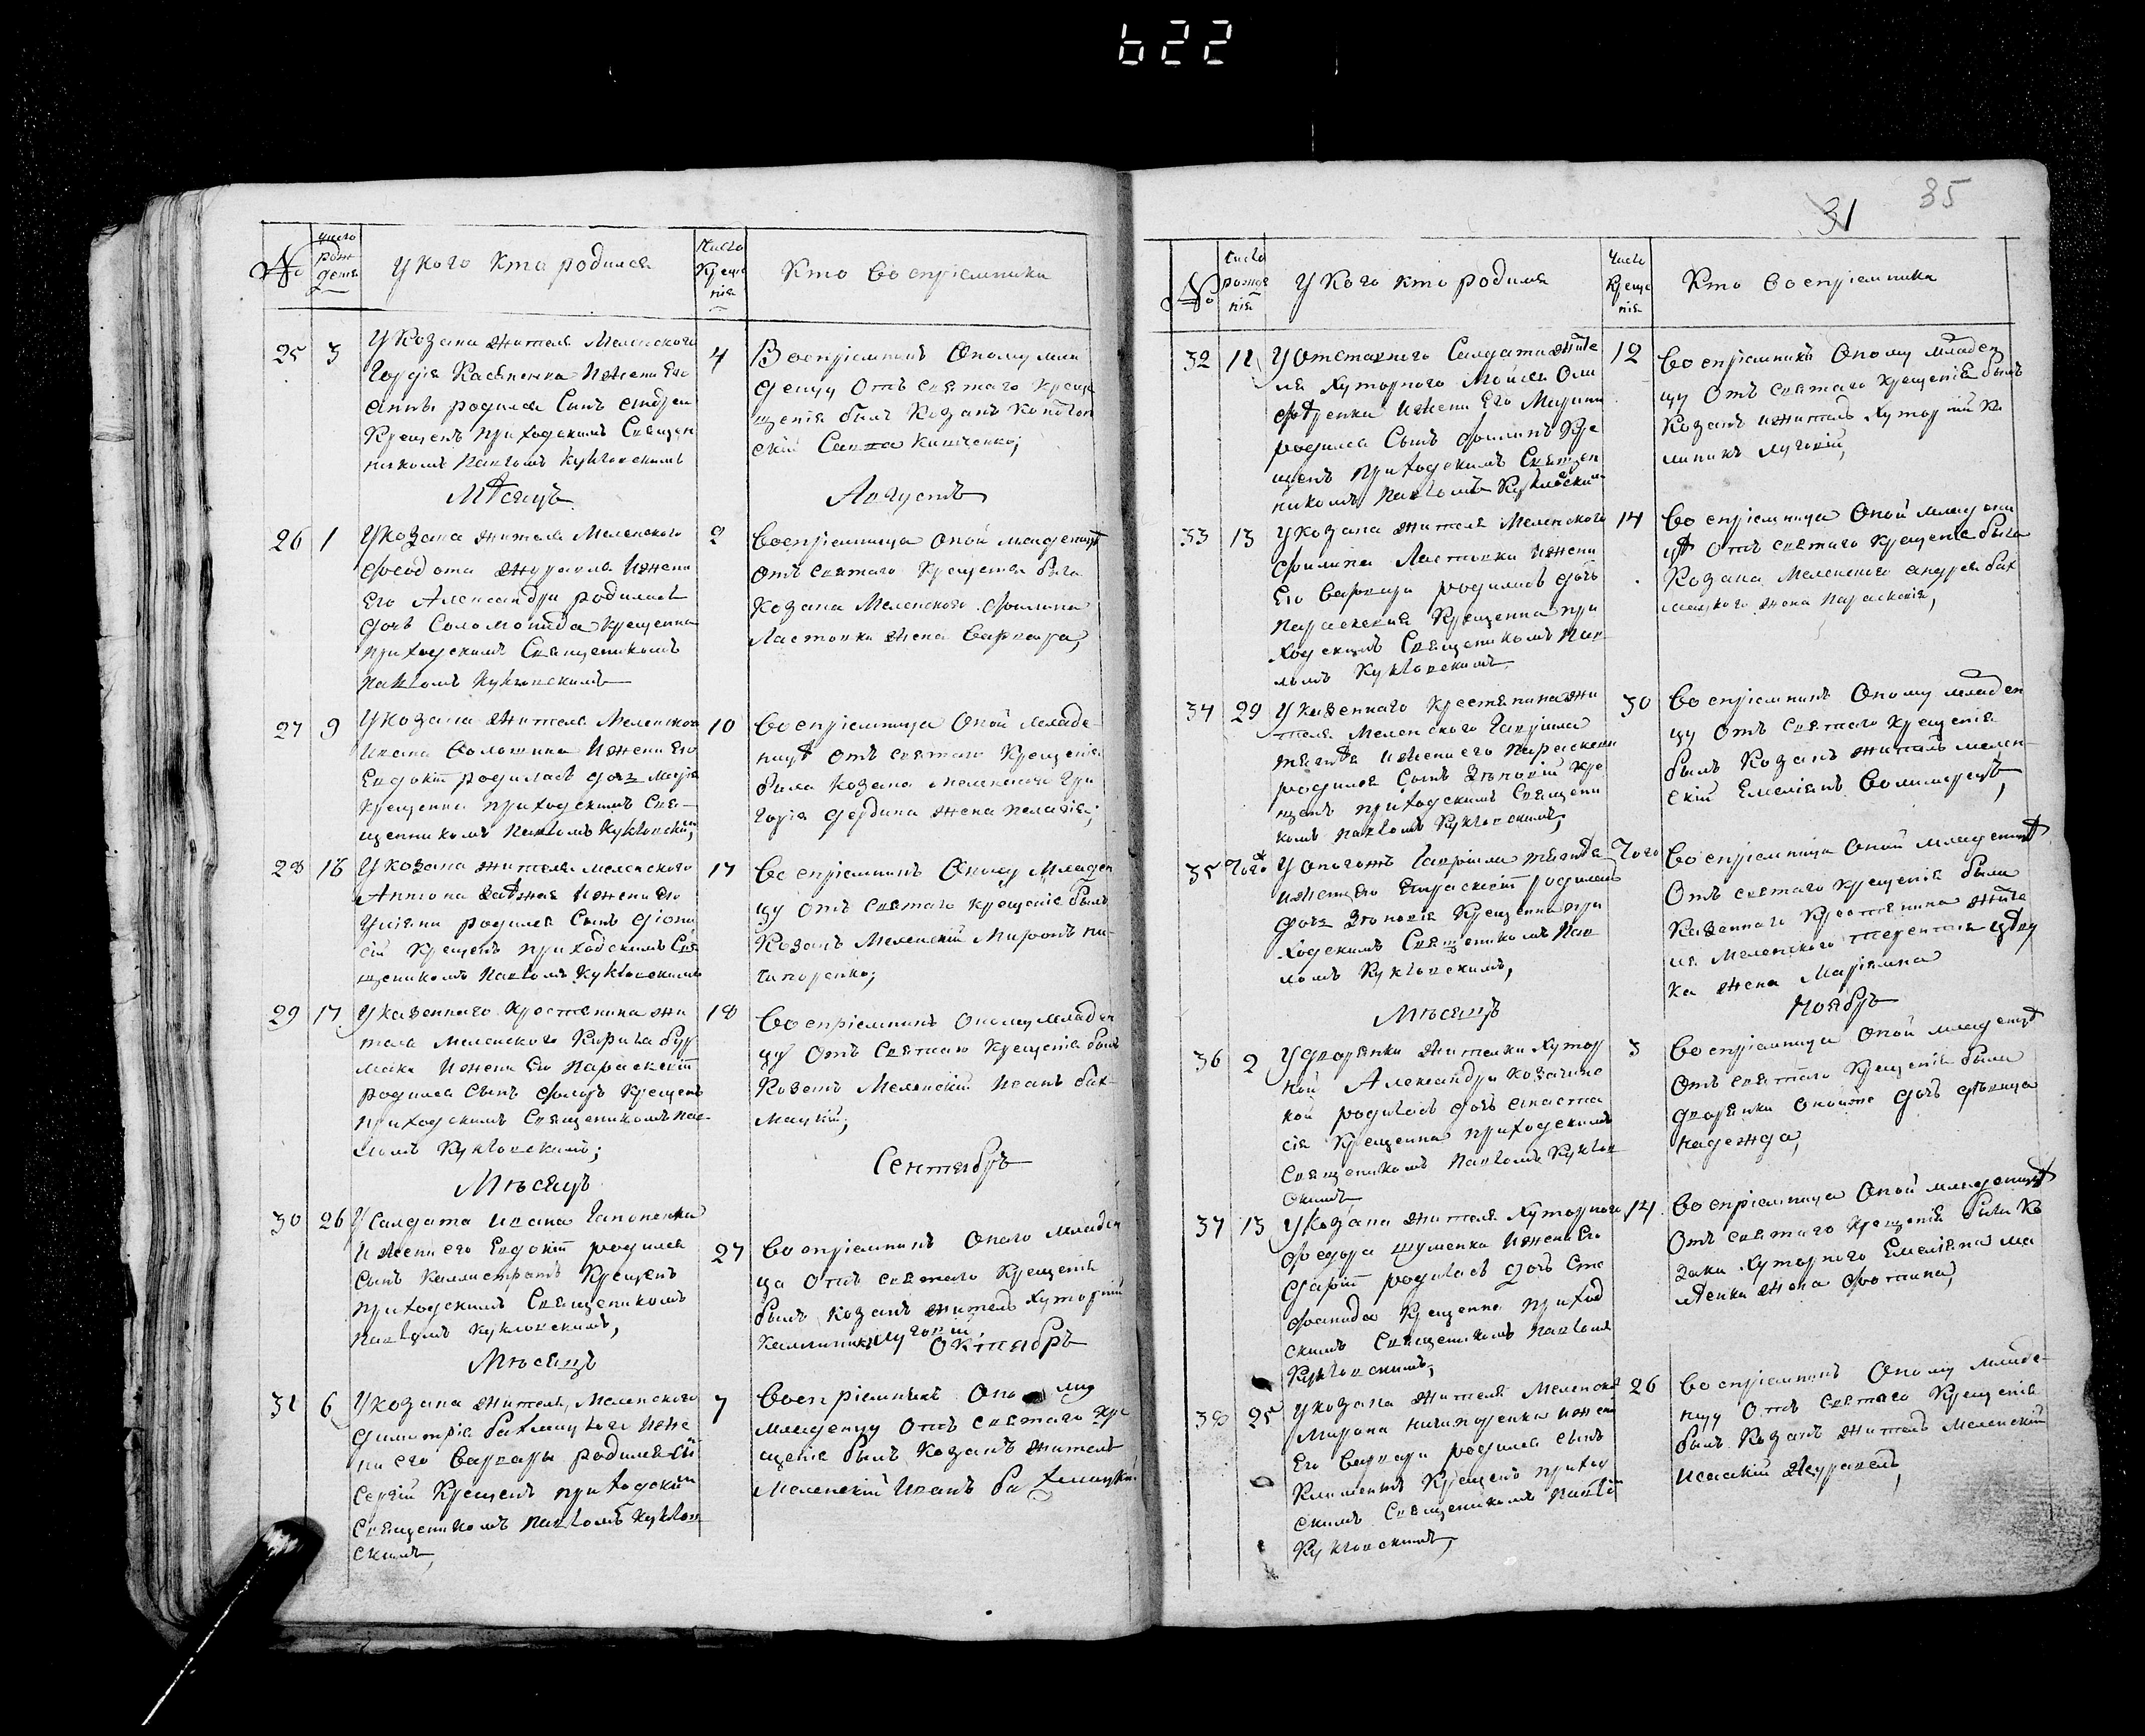 622
31
35
№
число рождения
У кого кто родился
Число Креще нія
Кто Воспріемники
25
3
У Козака жителя Меленского
Родился Сынъ Андрей
Крещенъ приходскимъ Священ
никомъ Павломъ Кукловскимъ
4
Воспріемникъ Оному мла
денцу Отъ святаго Креще
щенія былъ Козакъ
Мѣсяцъ
Августъ
26
1
У Козака жителя Меленского
Феодота Журавля и жени
Его Александри родилась
дочь Соломонида Крещенна
приходскимъ Священникомъ
Павломъ Кукловскимъ
2
Воспріемница Оной младеницѣ
Отъ святаго Крещенія была
Козака Меленского Филипа
Ластовки жена Варвара,
27
9
У Козака жителя Меленского
Ивана Волошина и жени Его
Евдокіи родилась дочь Марія
Крещенна приходскимъ Свя-
щенникомъ Павломъ Кукловскимъ;
10
Воспріемница Оной младе-
ницѣ Отъ святаго Крещенія
была Козака Меленского Гри
горія жена Пелагія;
28
16
У Козака жителя Меленского
Антона и жени Его
Уліяни родился Сынъ Діони
сій Крещенъ приходскимъ Свя
щеникомъ Павломъ Кукловскимъ
17
Воспріемникъ Оному Младен
цу Отъ Святаго Крещенія былъ
Козакъ Меленскій Миронъ Ни-
чипоренко;
29
17
У казенного Крестянина жи
теля Меленского Кирила Бур
маки и жени Его Параскевіи
родился Сынъ Крещенъ
приходскимъ Священикомъ Пав-
ломъ Кукловскимъ;
18
Воспріемникъ Оному младен
цу Отъ Святаго Крещенія былъ
Козакъ Меленскій Иванъ Бах-
мацкій;
Мѣсяцъ
Сентябрь
30
26
У Салдата Ивана Гапоненка
и жени его Евдокіи родился
сынъ Каллистратъ Крещенъ
приходскимъ Священикомъ
Павломъ Кукловскимъ,
27
Воспріемникъ Оного младен
ца Отъ святаго Крещенія
былъ Козакъ житель Хуторній
Калиникъ Луговій;
Мѣсяцъ
Октябрь
31
6
У Козака жителя Меленского
Димитрія Бахмуцкого и же
ни его Варвары родился Сынъ
Сергій Крещенъ приходскимъ
Священикомъ Павломъ Куклов
скимъ,
7
Воспріемникъ
младенцу Отъ святаго Кре
щенія былъ Козакъ житель
Меленскій Иванъ Бахмацкій
№
Число рожде нія
У Кого кто родился
Число Креще нія
Кто Воспріемники
32
11
У Отставного Салдата жите
ля Хуторного Мойсея
и жени Его Марини
родился Сынъ Филипъ Кре
щенъ приходскимъ Священ
никомъ Павломъ Кукловскимъ
12
Воспріемникъ Оному младен
цу Отъ святаго Крещенія былъ
Козакъ и житель Хуторній Ка
линикъ Луговій,
33
13
У Козака жителя Меленского
Филипа Ластовки и жени
Его Варвари родилась дочь
Параскевія Крещенна при
ходскимъ Священикомъ Пав-
ломъ Кукловскимъ
14
Воспріемница Оной младени
цѣ Отъ святаго Крещенія была
Козака Меленского Андрея Бах
мацкого жена Параскевія,
34
29
У казенного Крестянина жи
теля Меленского Гавріила
и жени его Параскеви
родился Сынъ Зѣновій Кре
щенъ приходскимъ Священи
комъ Павломъ Кукловскимъ;
30
Воспріемникъ Оному младен
цу Отъ святаго Крещенія
былъ Козакъ житель Мелен-
скій Емеліянъ
35
Того
У Оногожъ Гавріила
и жени Его Параскевіи родилась
дочь Зѣновія Крещенна при
ходскимъ Священикомъ Пав
ломъ Кукловскимъ,
Того
Воспріемница Оной младеницѣ
Отъ святаго Крещенія была
Казенного Крестянина жите
ля Меленского Терентія
ка жена Маріямна
Мѣсяцъ
Ноябрь
36
2
У дворянки жителки Хутор
ной Александри Козачинс
кой родилась дочь Анаста
сія Крещенна приходскимъ
Священикомъ Павломъ Куклов
скимъ
3
Воспріемница Оной младеницѣ
Отъ святаго Крещенія была
дворянки Онойже дочь дѣвица
Надежда,
37
13
У Козака жителя Хуторного
Федора Шуменка и жени Его
Даріи родилась дочь Сте
фанида Крещенна приход
скимъ Священикомъ Павломъ
Кукловскимъ;
14
Воспріемница Оной младеницѣ
Отъ святаго Крещенія была Ко
зака Хуторного Емеліяна
жена Фотина,
38
25
У Козака жителя Меленско
Мирона Ничипоренка и жени
Его Варвари родился сынъ
Климентъ Крещенъ приход
скимъ Священикомъ Павломъ
Кукловскимъ,
26
Воспріемникъ Оному младе-
нцу Отъ святаго Крещенія
былъ Козакъ житель Меленскій
Исаакій Журавель,